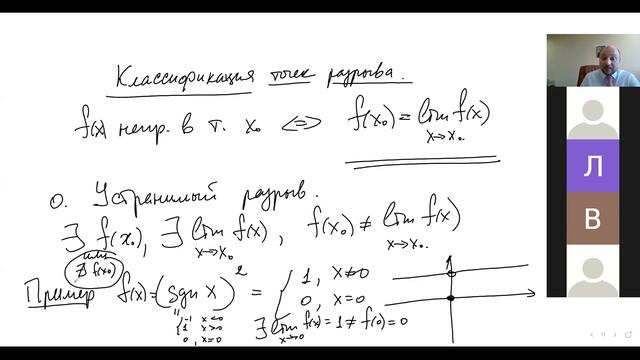 Классификация точек разрыва.
f(x) непр. в т. x₀ ⇔ f(x₀) = lim f(x)
x→x₀
0. Устранимый разрыв.
∃ f(x₀), ∃ lim f(x), f(x₀) ≠ lim f(x)
x→x₀ x→x₀.
или
∄ f(x₀)
Пример f(x) = (sgn x)² = { 1, x≠0
0, x=0
-1 x<0
1 x>0
0, x=0
∃ lim f(x) = 1 ≠ f(0) = 0
x→0
1
Л
В